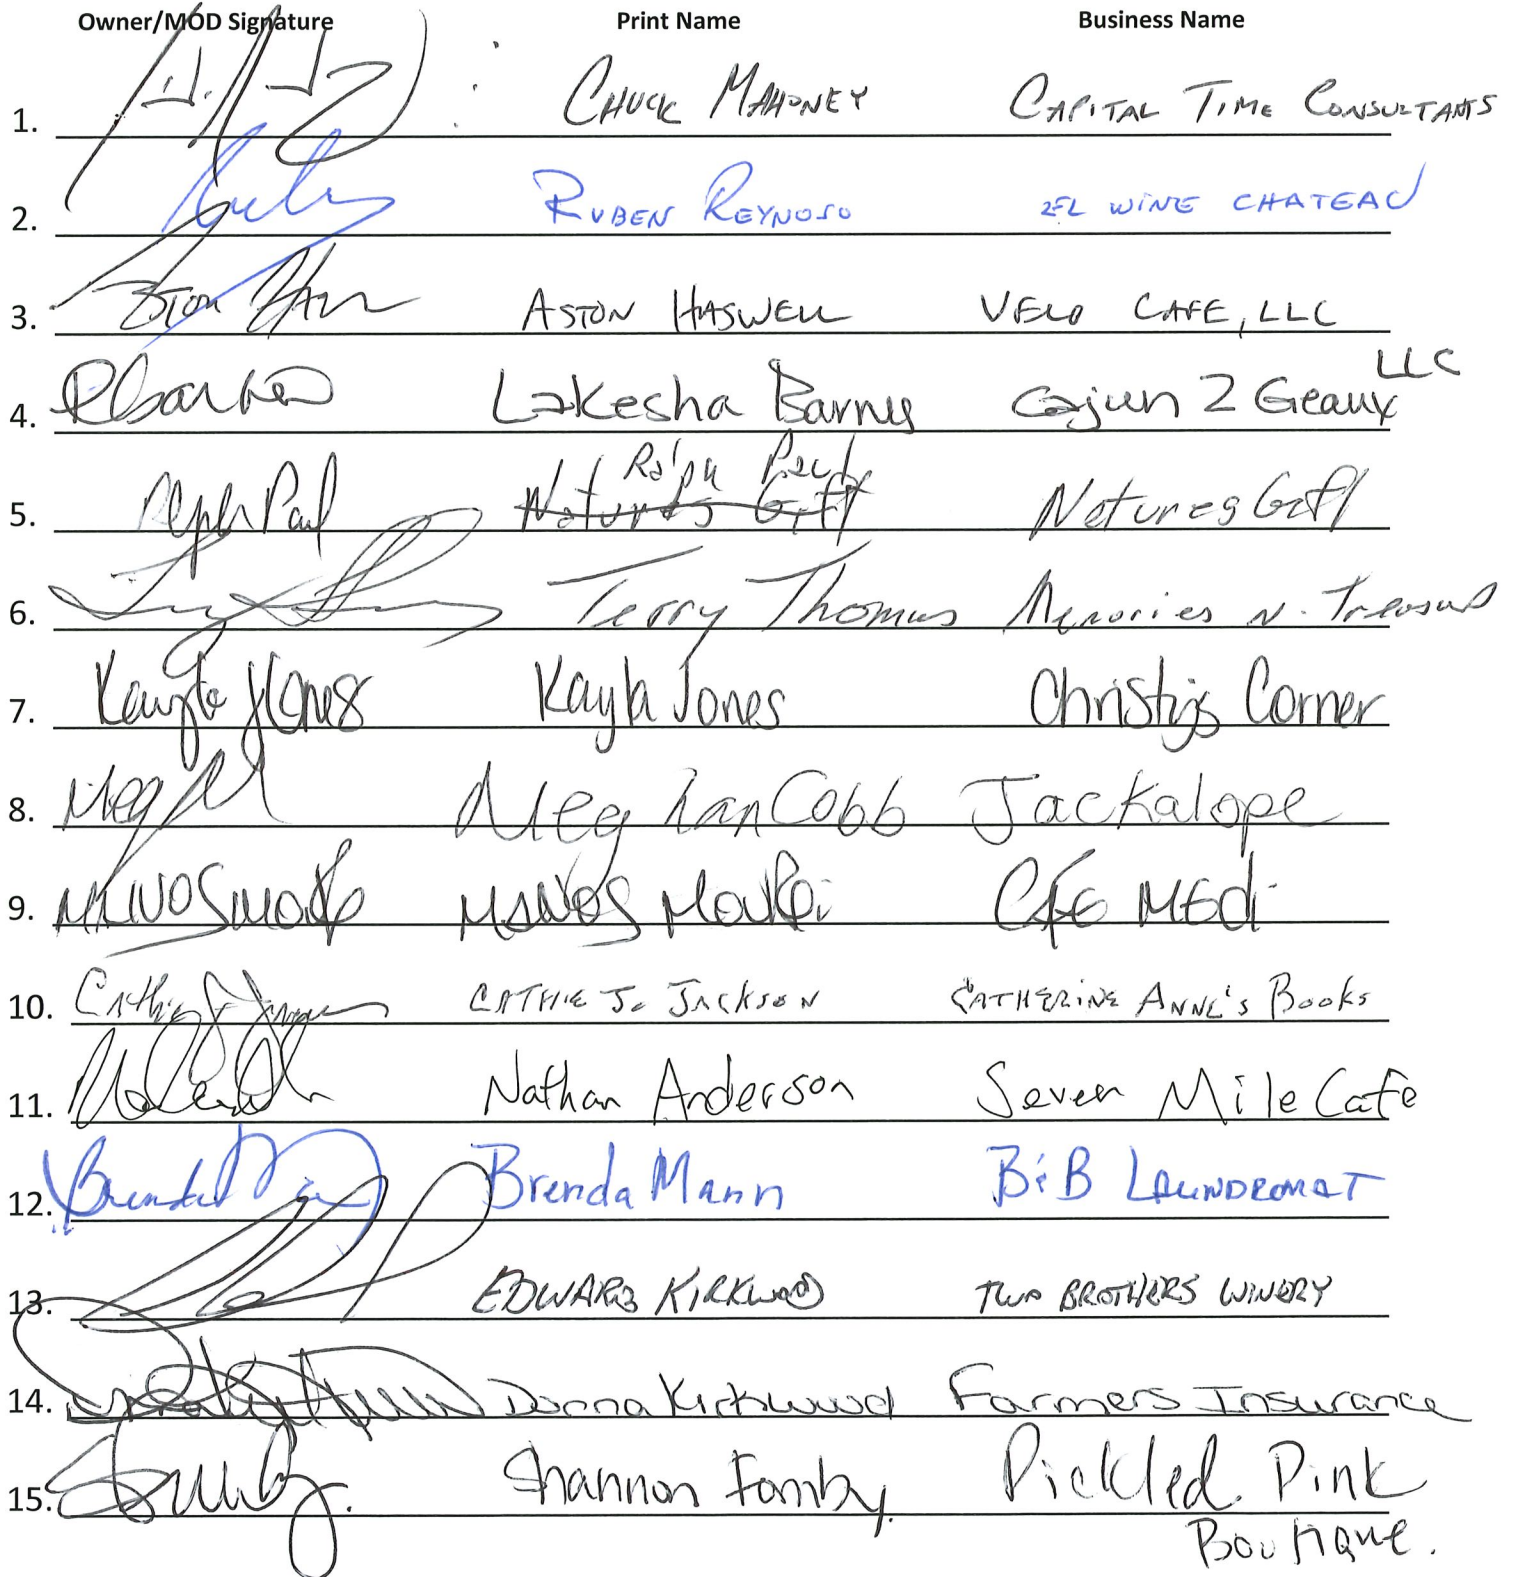 Owner/MOD Signature Print Name Business Name
1. CHUCK MAHONEY CAPITAL TIME CONSULTANTS
2. RUBEN REYNOSO WINE CHATEAU
3. Aston ASTON HASWELL VELO CAFE, LLC
4. Lakesha Barny Cajun 2 Geaux LLC
Ralph Paul
5. Ralph Paul Natures Gift Natures Gift
6. Terry Thomas Memories N. Treasures
7. Kayla Jones Kayla Jones Christi's Corner
8. Meg Meg VanCobb Jackalope
9. MANOS Cafe MEdi
10. Cathie J. CATHIE J. JACKSON CATHERINE ANNE'S BOOKS
11. Nathan Anderson Seven Mile Cafe
12. Brenda Brenda Mann B&B LAUNDROMAT
13. EDWARD KIRKWOOD TWO BROTHERS WINERY
14. Donna Kirkwood Farmers Insurance
15. Shannon Fomby. Pickled Pink
Boutique.